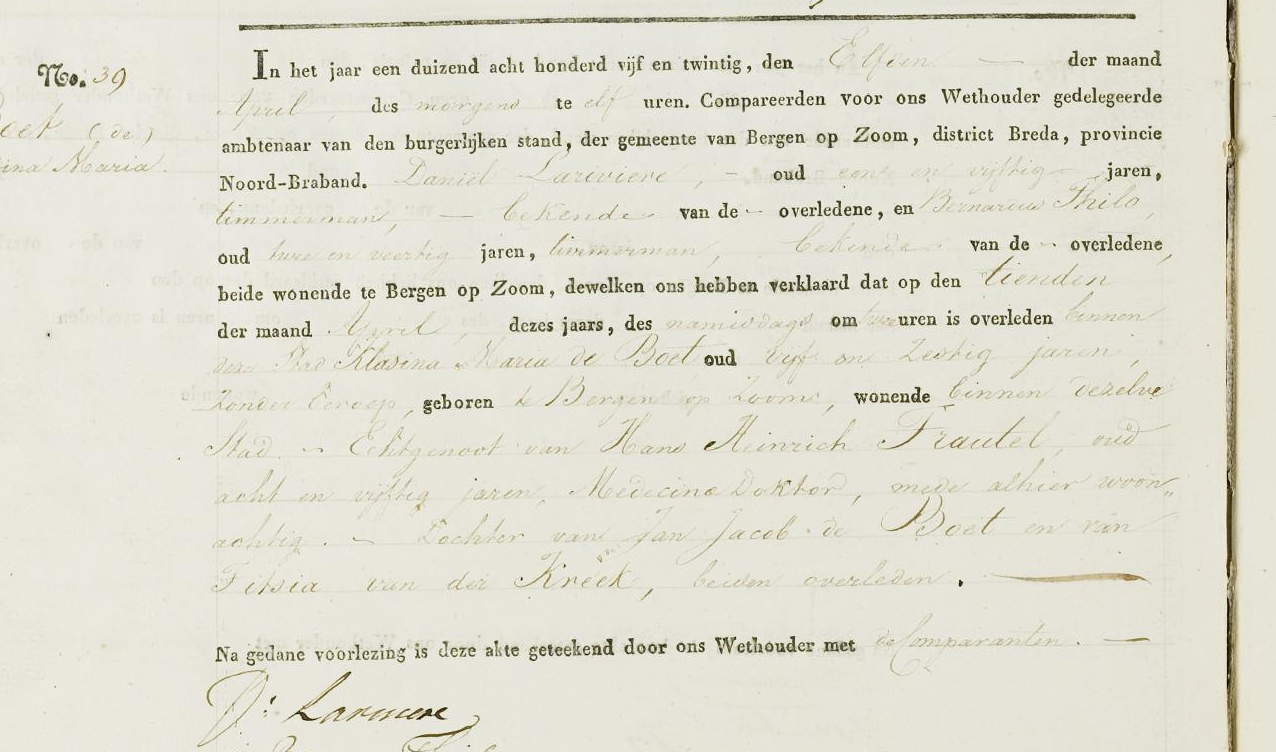 No. 39
In het jaar een duizend acht honderd vijf en twintig, den Elfden — der maand
(de)
April, des morgens te elf uren. Compareerden voor ons Wethouder gedelegeerde
ambtenaar van den burgerlijken stand, der gemeente van Bergen op Zoom, district Breda, provincie
Maria.
Noord-Braband. Daniël Lariviere, — oud een en vijftig jaren,
timmerman, — bekende van de overledene, en Bernardus Philo,
oud twee en veertig jaren, timmerman, bekende van de overledene,
beide wonende te Bergen op Zoom, dewelken ons hebben verklaard dat op den tienden
der maand April, dezes jaars, des namiddags om twee uren is overleden binnen
deze Stad Klasina Maria de Boet oud vijf en Zestig jaren,
Zonder beroep, geboren te Bergen op Zoom, wonende binnen dezelve
Stad. — Echtgenoot van Hans Heinrich Frautel, oud
acht en vijftig jaren, Medicina Doktor, mede alhier woon„
achtig. — Dochter van Jan Jacob de Boet en van
van der Kreek, beiden overleden. —
Na gedane voorlezing is deze akte geteekend door ons Wethouder met de Comparanten. —
D: Lariviere